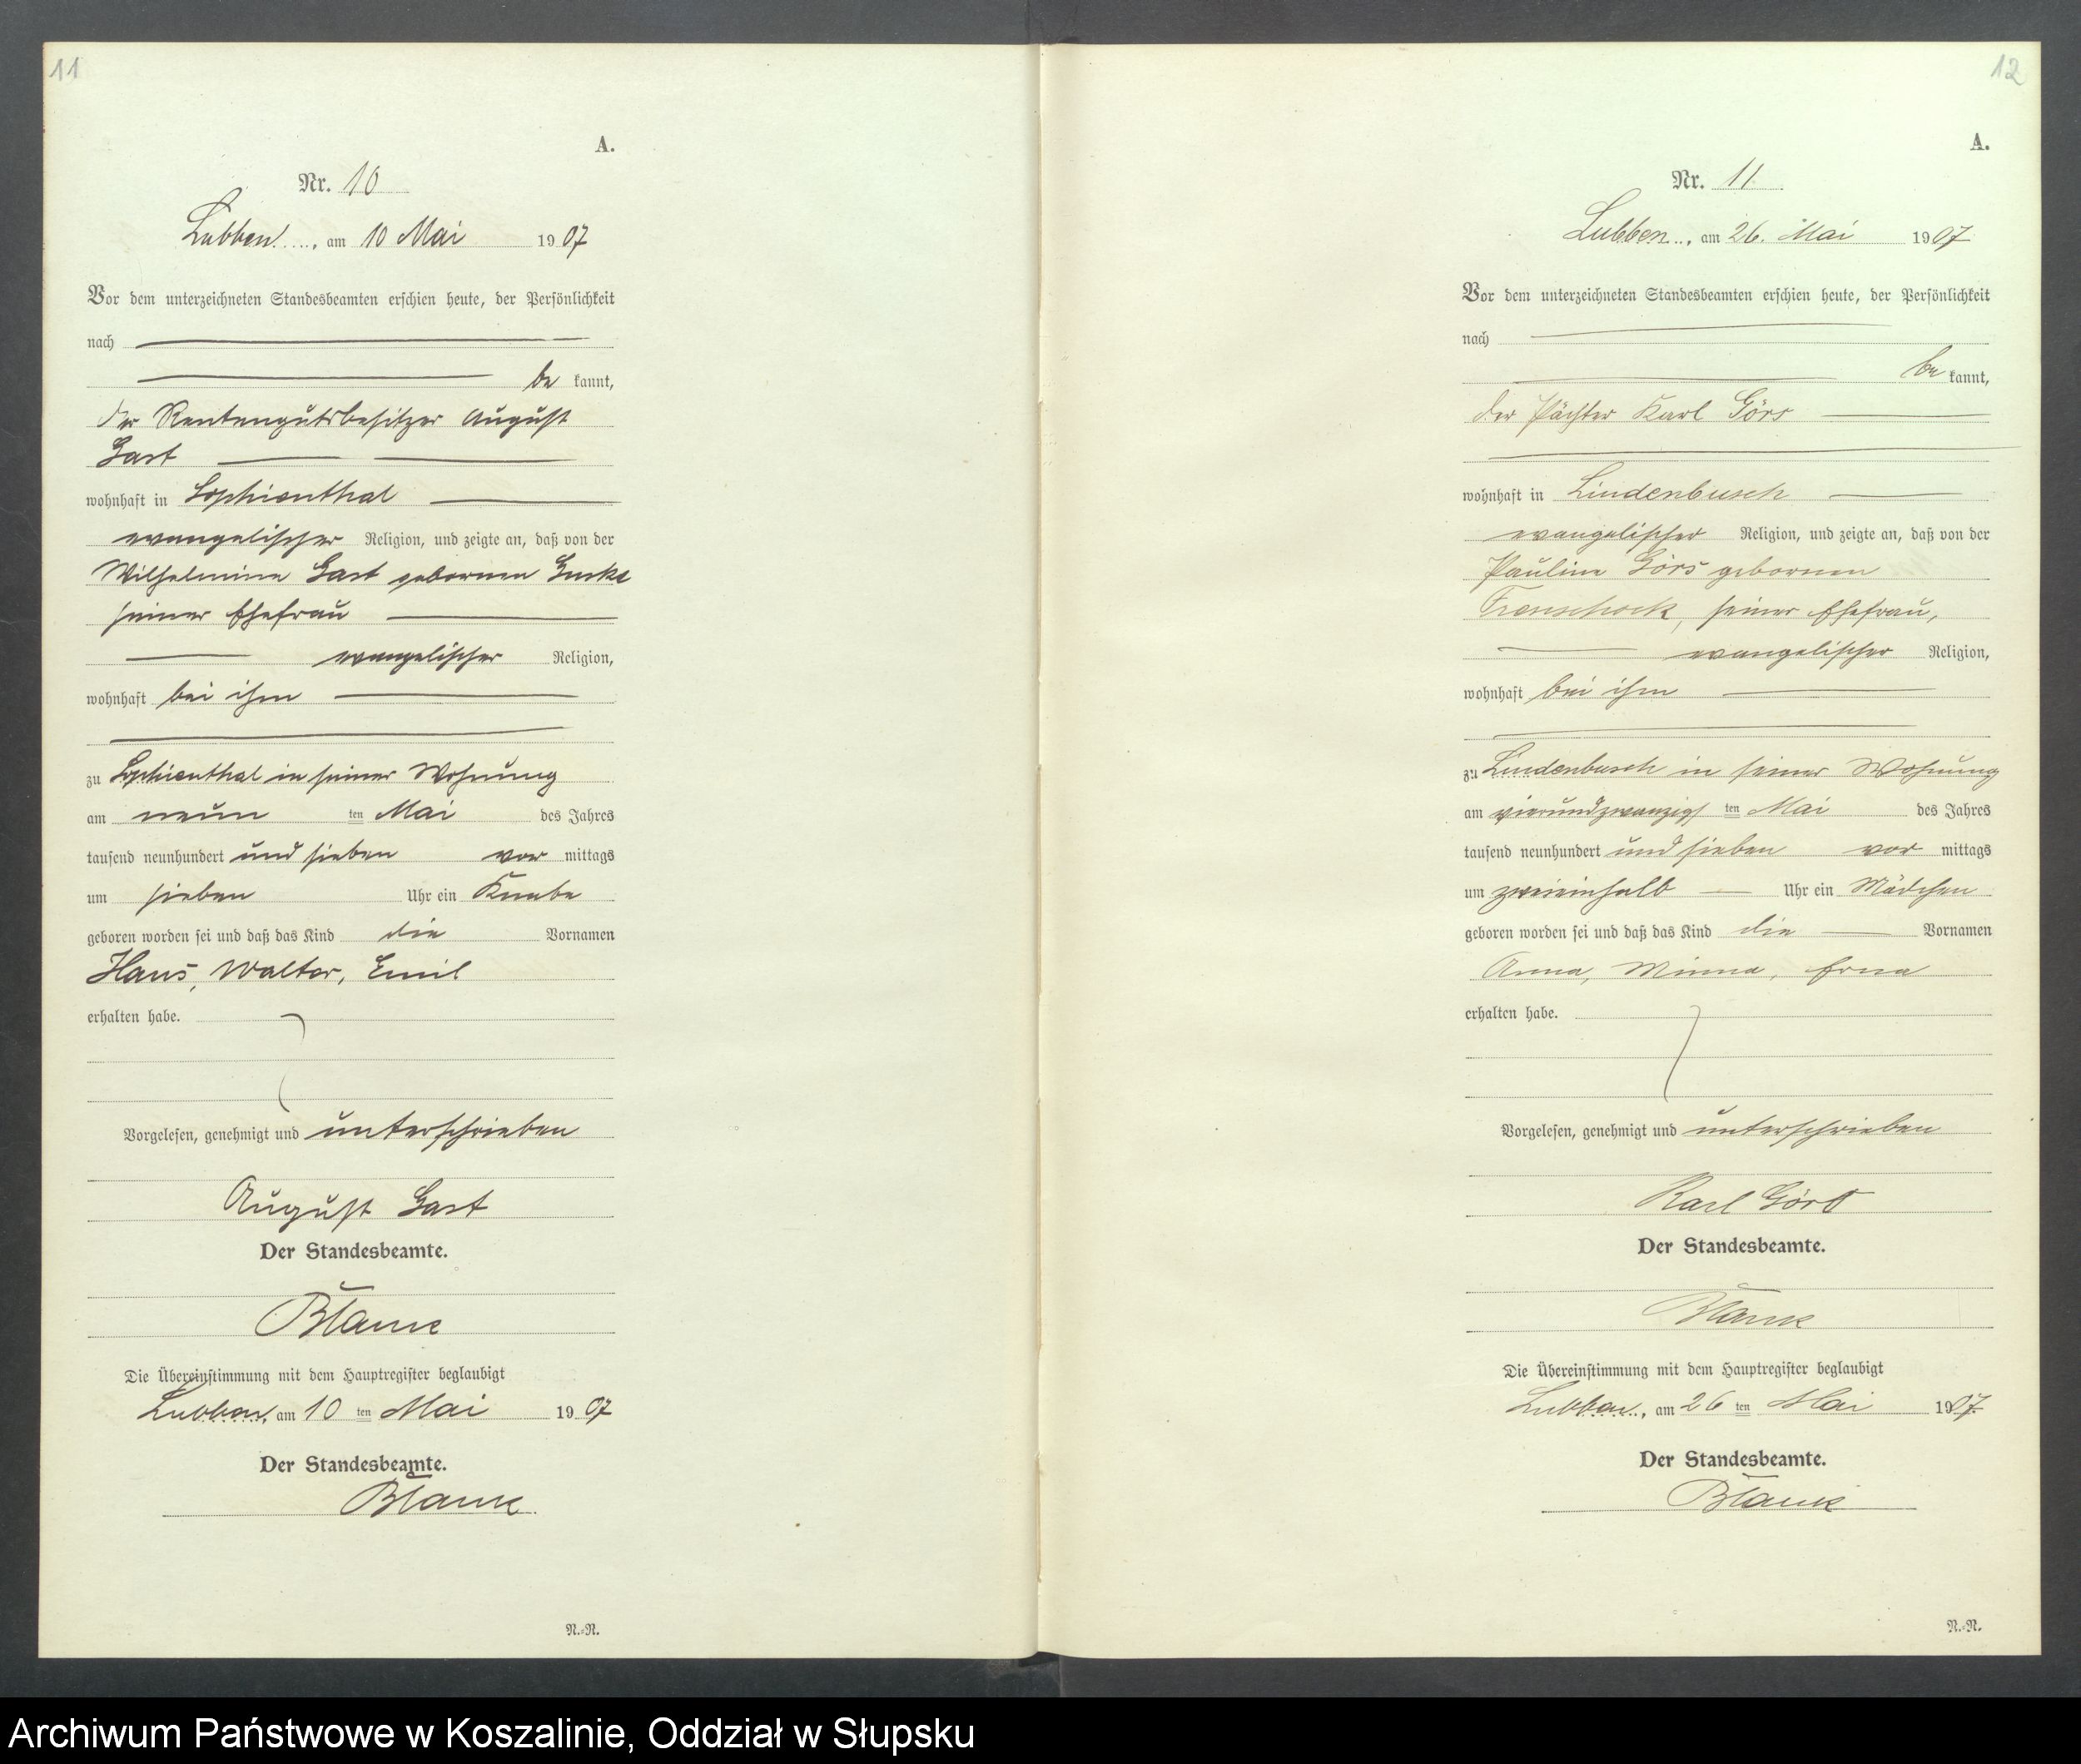 11
A.
Nr. 10
Lubben, am 10 Mai 1907
Vor dem unterzeichneten Standesbeamten erschien heute, der Persönlichkeit
nach
be kannt,
der Rentengutsbesitzer August
Gast
wohnhaft in Sophienthal
evangelischer Religion, und zeigte an, daß von der
Wilhelmine Gast gebornen
seiner Ehefrau
evangelischer Religion,
wohnhaft bei ihm
zu Sophienthal in seiner Wohnung
am neun ten Mai des Jahres
tausend neunhundert und sieben vor mittags
um sieben Uhr ein Knabe
geboren worden sei und daß das Kind die Vornamen
Hans, Walter, Emil
erhalten habe.
Vorgelesen, genehmigt und unterschrieben
August Gast
Der Standesbeamte.
Blank
Die Übereinstimmung mit dem Hauptregister beglaubigt
Lubben, am 10 ten Mai 1907
Der Standesbeamte.
Blank
N.-N.
12
A.
Nr. 11
Lubben, am 26. Mai 1907
Vor dem unterzeichneten Standesbeamten erschien heute, der Persönlichkeit
nach
be kannt,
der Pächter Karl Görs
wohnhaft in Lindenbusch
evangelischer Religion, und zeigte an, daß von der
Pauline Görs gebornen
seiner Ehefrau,
evangelischer Religion,
wohnhaft bei ihm
zu Lindenbusch in seiner Wohnung
am vierundzwanzigs ten Mai des Jahres
tausend neunhundert und sieben vor mittags
um zweieinhalb Uhr ein Mädchen
geboren worden sei und daß das Kind die Vornamen
Anna, Minna, Erna
erhalten habe.
Vorgelesen, genehmigt und unterschrieben
Karl Görs
Der Standesbeamte.
Blank
Die Übereinstimmung mit dem Hauptregister beglaubigt
Lubben, am 26 ten Mai 1907
Der Standesbeamte.
Blank
N.-N.
Archiwum Państwowe w Koszalinie, Oddział w Słupsku